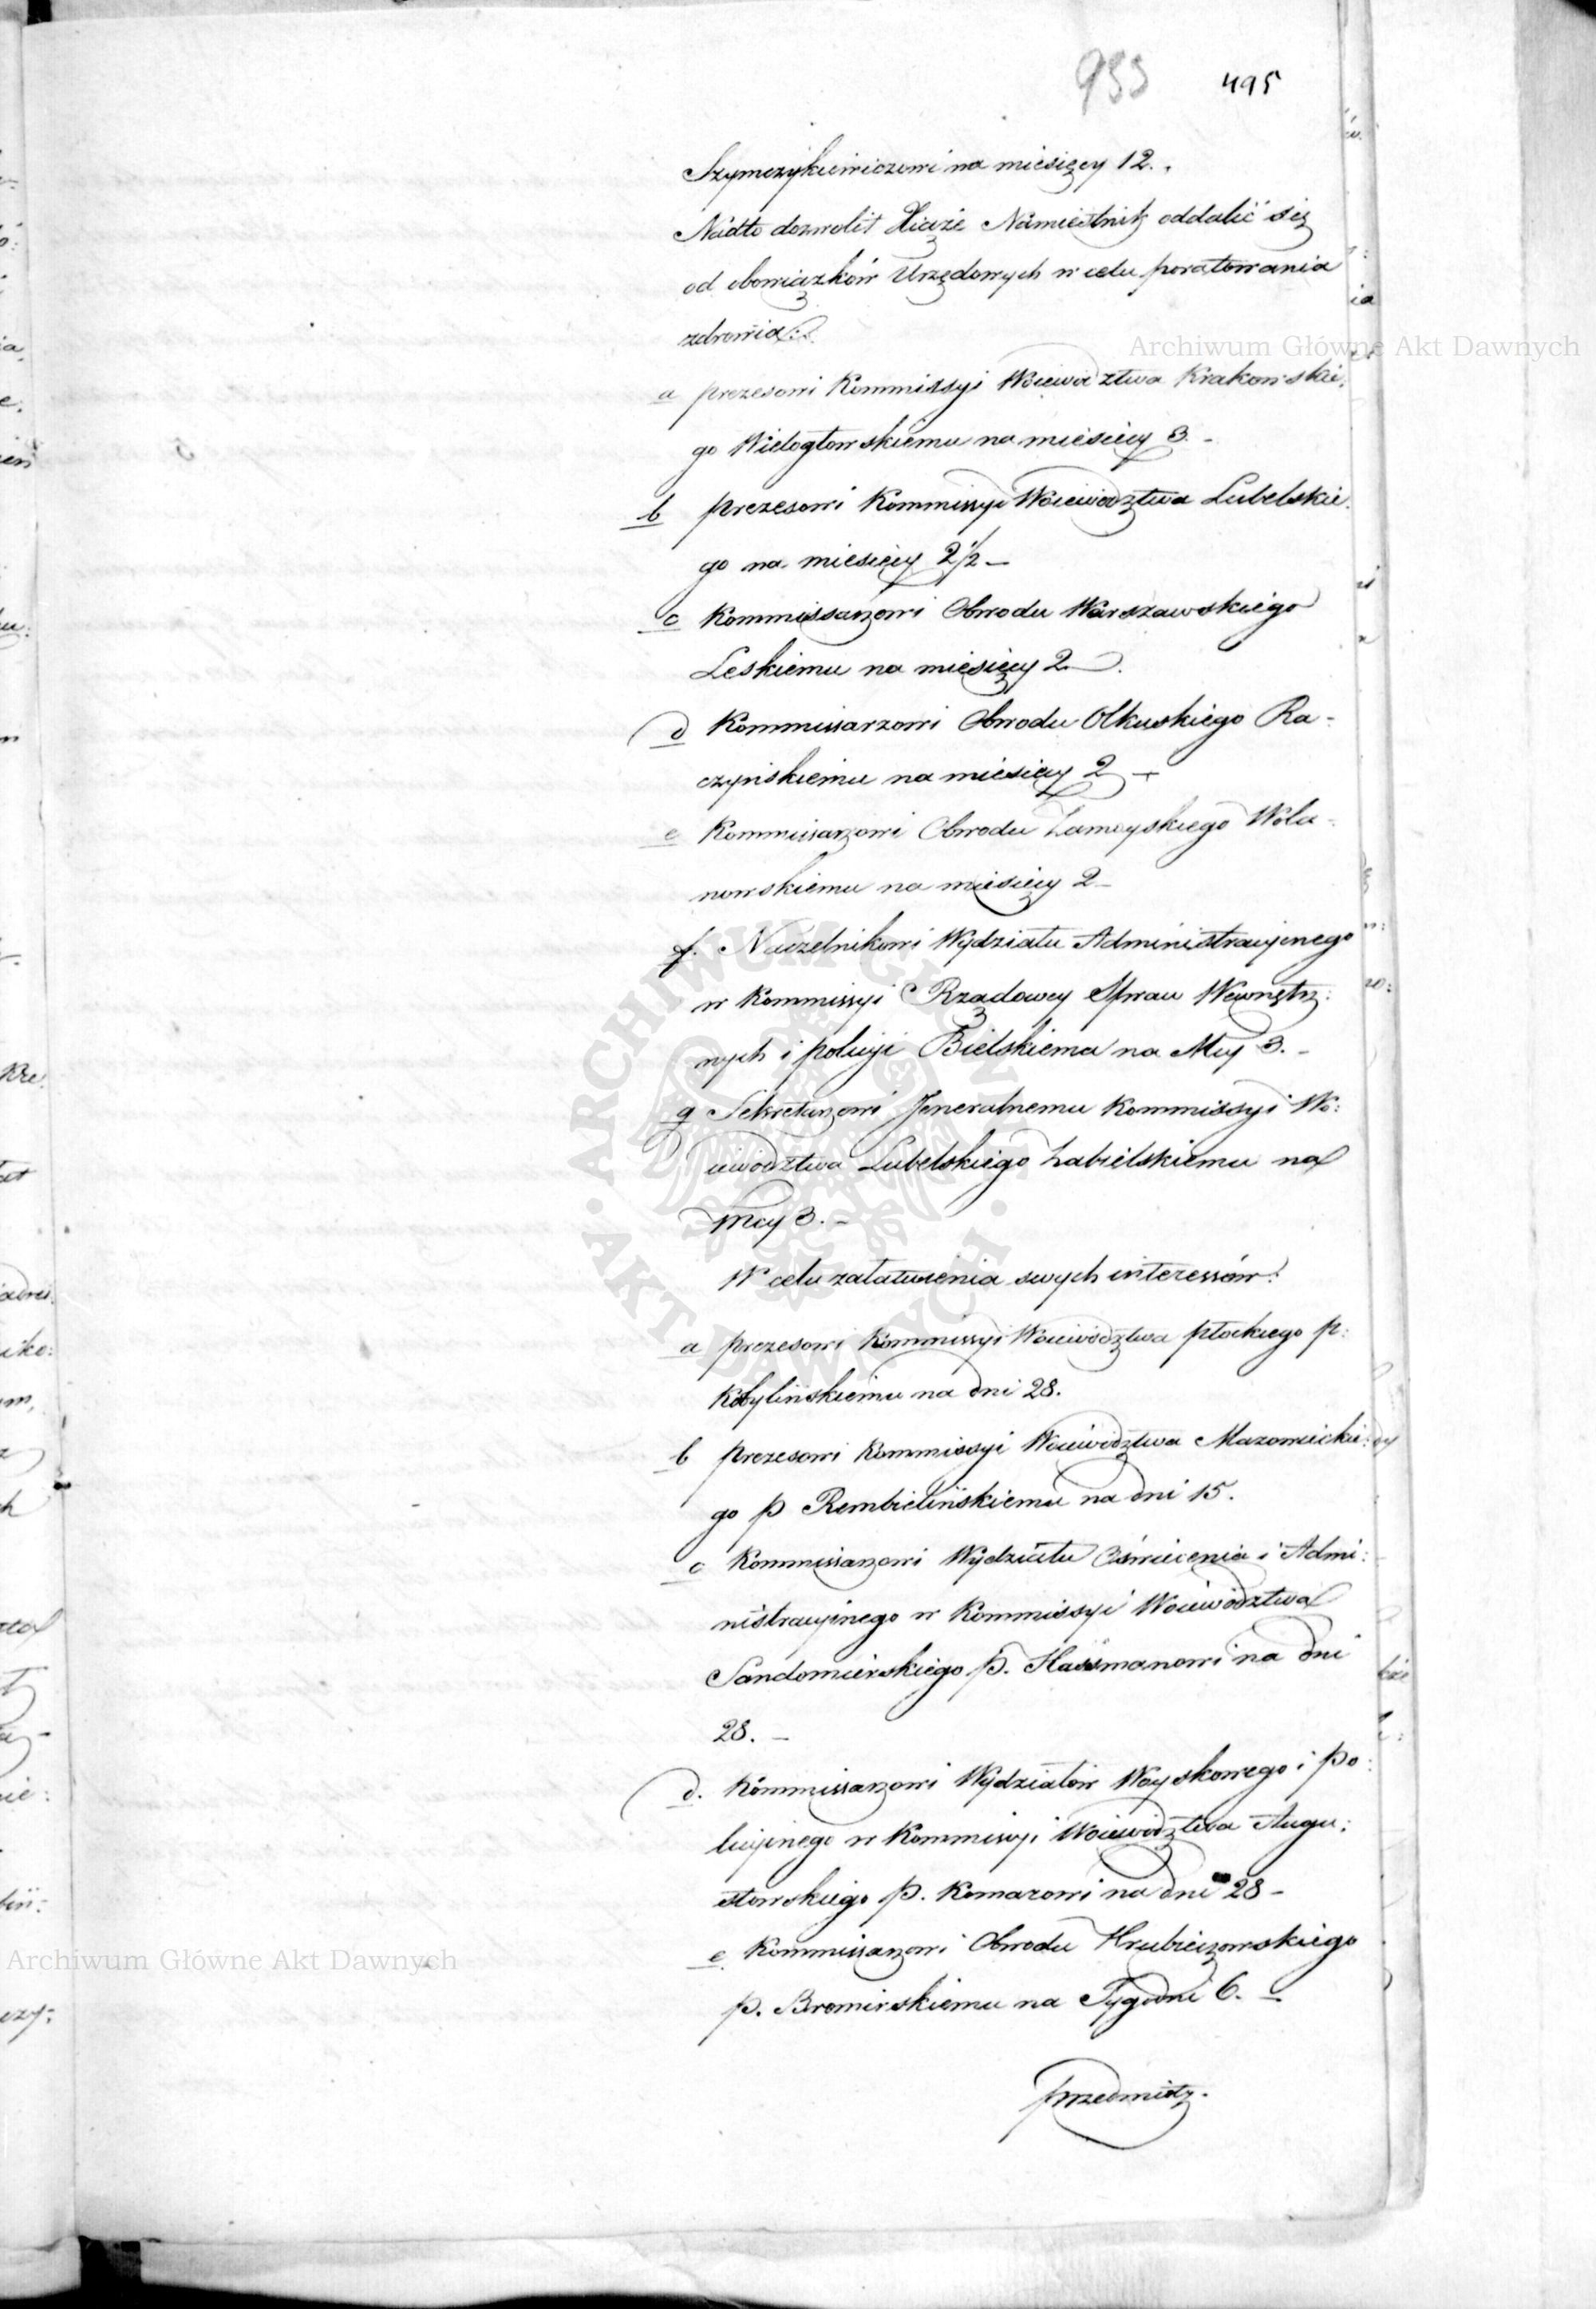 953 495
Szymczykiewiczowi na miesięcy 12.
Nadto dozwolił Xiąże Namiestnik oddalić się
od obowiązków Urzędowych w celu poratowania
zdrowia:
a prezesowi Kommissyi Woiewodztwa Krakowskie:
go Wielogłowskiemu na miesięcy 3. -
b prezesowi Kommissyi Woiewodztwa Lubelskie:
go na miesięcy 2 1/2 -
c Kommissarzowi Obwodu Warszawskiego
Leskiemu na miesięcy 2.
d Kommissarzowi Obwodu Olkuskiego Ra-
czyńskiemu na miesięcy 2 -
e Kommissarzowi Obwodu Zamoyskiego Wola-
nowskiemu na miesięcy 2 -
f. Naczelnikowi Wydziału Administracyjnego
w Kommissyi Rządowey Spraw Wewnętrz:
nych i policyi Bielskiemu na Mcy 3. -
g Sekretarzowi Jeneralnemu Kommissyi Wo:
iewodztwa Lubelskiego Zabielskiemu na
Mcy 3. -
W celu załatwienia swych interessów:
a prezesowi Kommissyi Woiewództwa płockiego p:
Kobylińskiemu na dni 28.
b prezesowi Kommissyi Woiewództwa Mazowieckie:
go p Rembielińskiemu na dni 15.
c Kommissarzowi Wydziału Oświecenia i Admi:
nistracyinego w Kommissyi Woiewództwa
Sandomierskiego p. Hassmanowi na dni
28. -
d. Kommissarzowi Wydziałów Woyskowego i po:
licyinego w Kommissyi Woiewództwa Augu:
stowskiego p. Komarowi na dni 28 -
e Kommissarzowi Obwodu Hrubieszowskiego
p. Bromirskiemu na Tygodni 6. -
przedmioty.
Archiwum Główne Akt Dawnych
Archiwum Główne Akt Dawnych
ARCHIWUM GŁÓWNE · AKT DAWNYCH ·